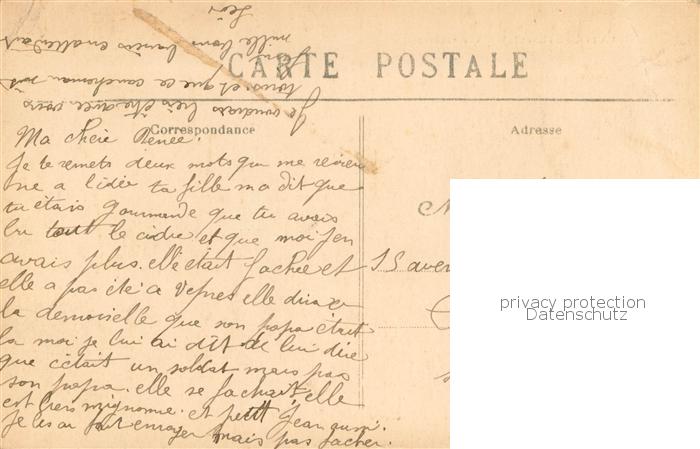 CARTE POSTALE
Correspondance
Adresse
Ma chère Renée.
Je te remets deux mots qui me revien
ne a l'idée ta fille m a dit que
tu étais gourmande que tu avais
bu tout le cidre et que moi j'en
avais plus. elle était fachée et
elle a pas été a Vepres elle dira a
la demoiselle que son papa était
la moi je lui ai dit de lui dire
que c'était un soldat mais pas
son papa. elle se fachait elle
est très mignonne. et petit Jean aussi.
Je les ai fait enrager mais pas facher.
Je voudrais très être avec vous
tous et que ce cauchemar soit
mille bons baisers en attendant
15 aven
privacy protection
Datenschutz